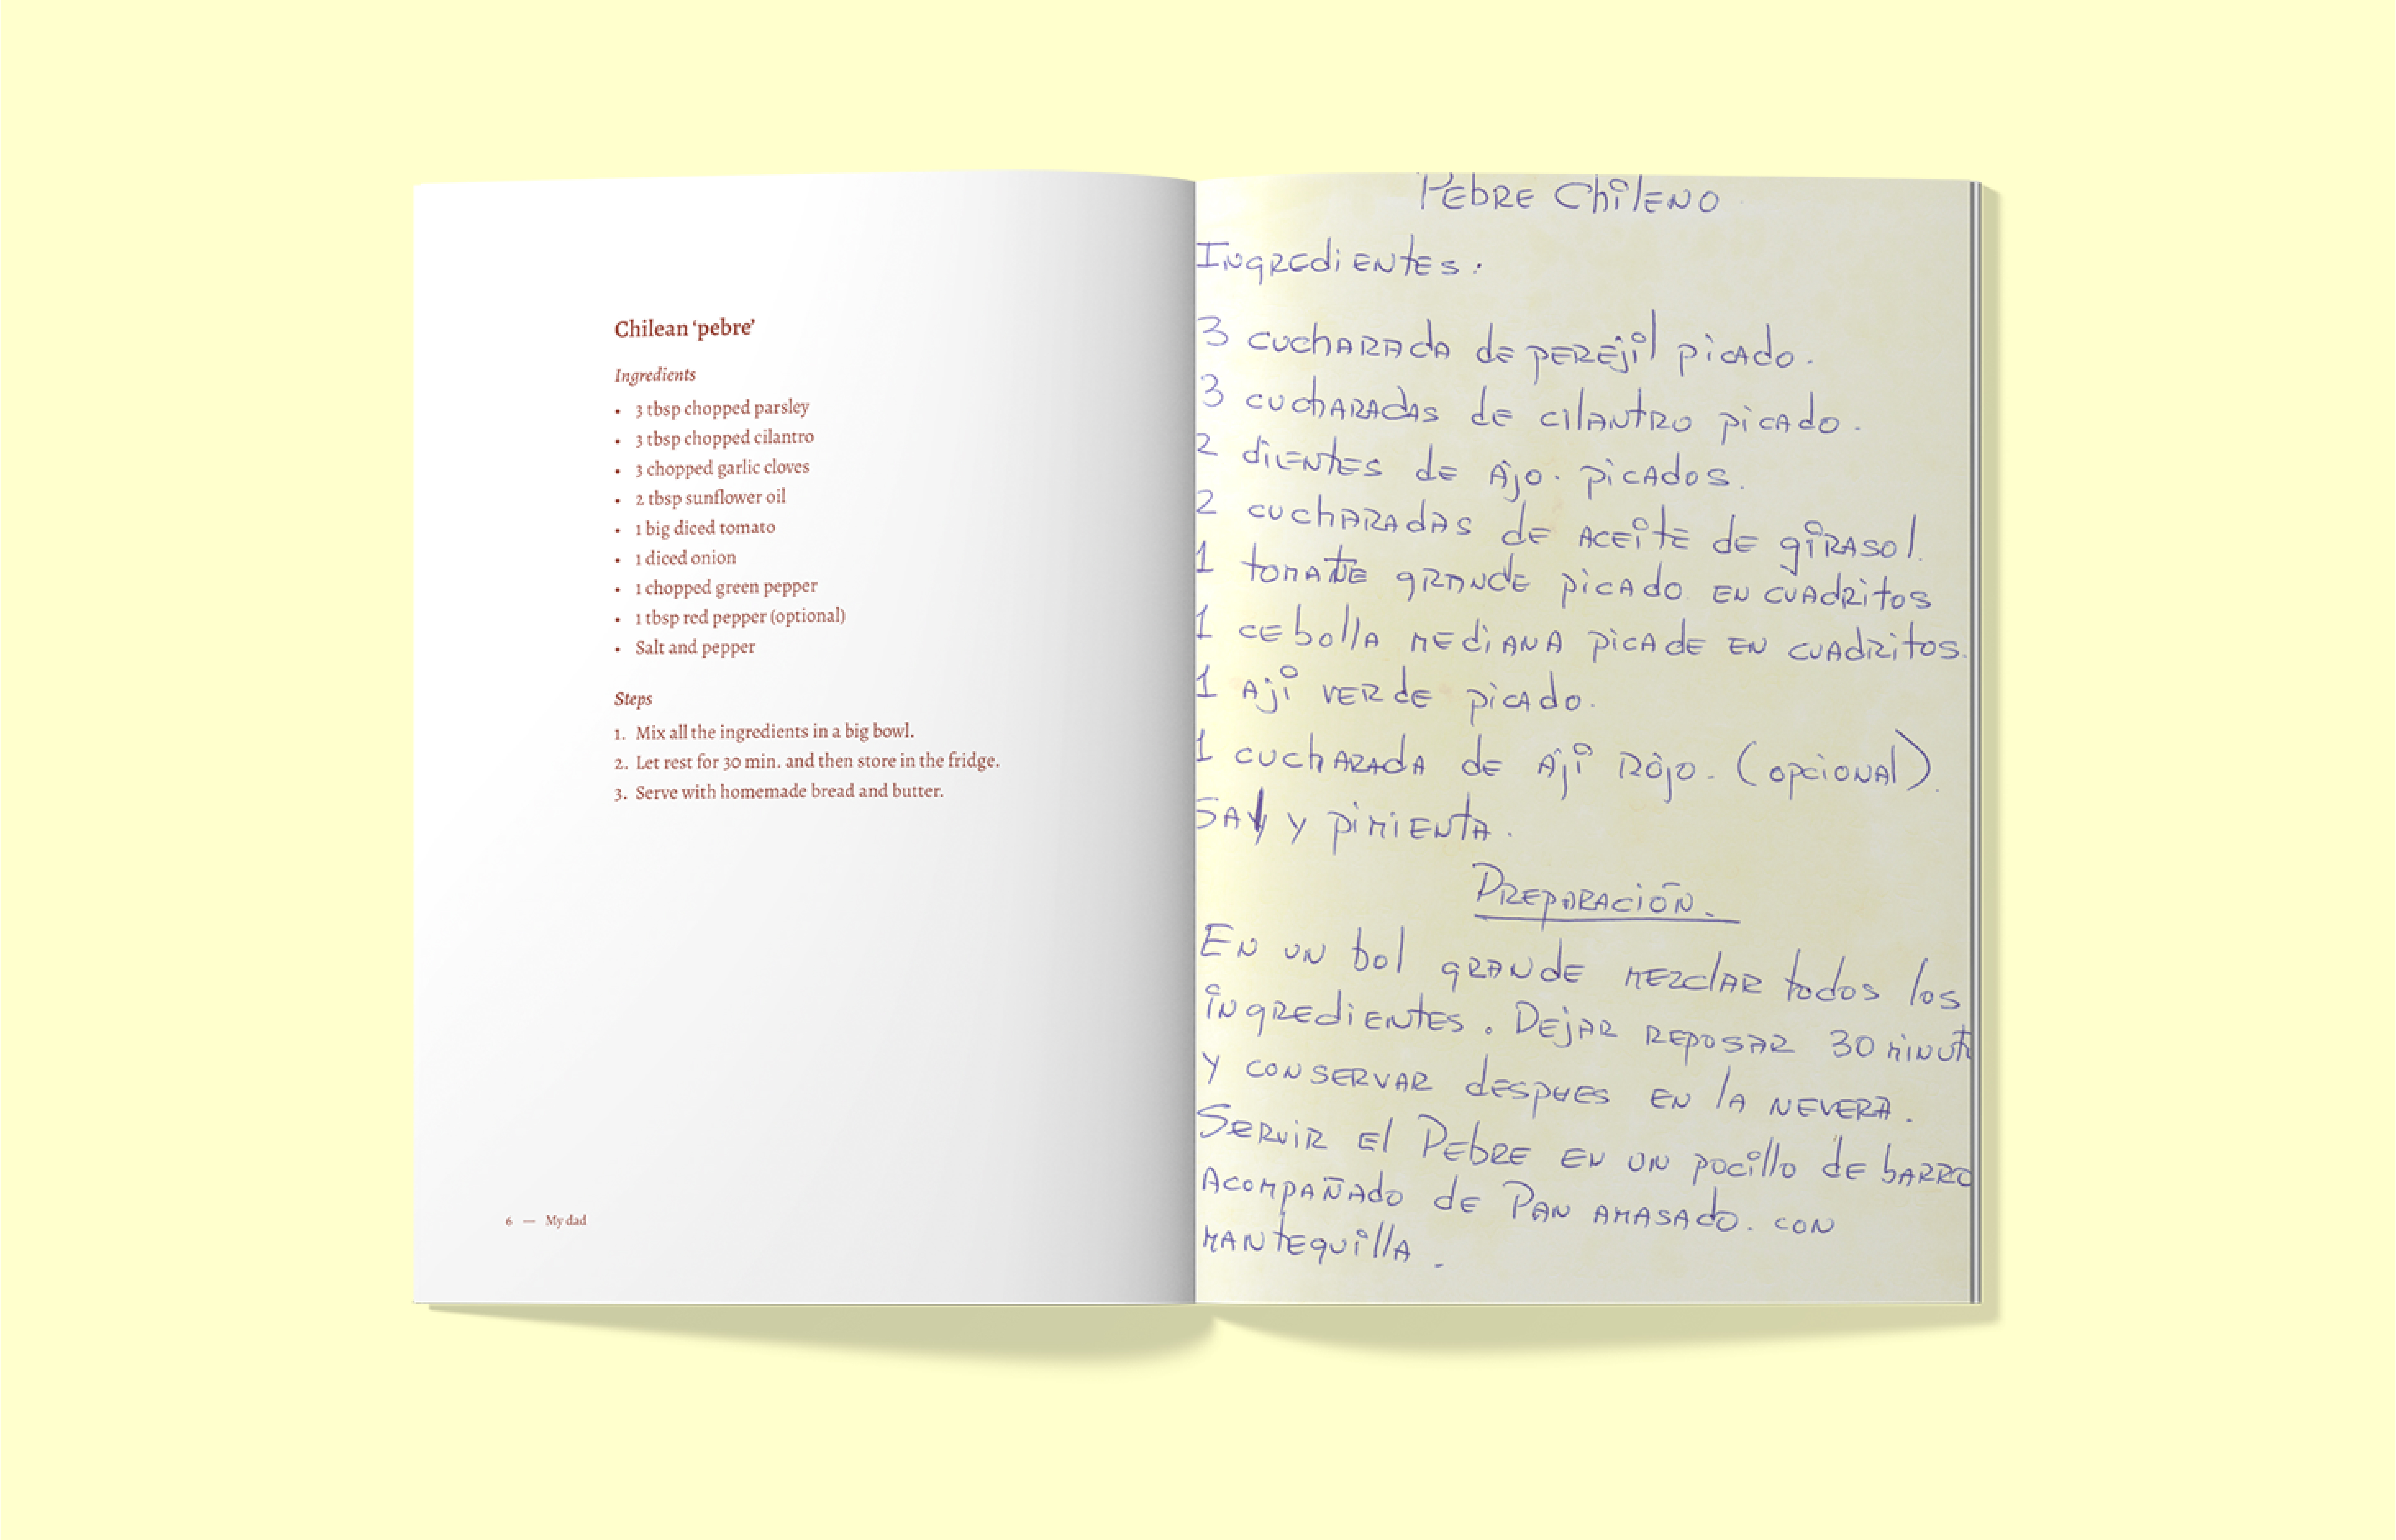 Chilean ‘pebre’
Ingredients
• 3 tbsp chopped parsley
• 3 tbsp chopped cilantro
• 3 chopped garlic cloves
• 2 tbsp sunflower oil
• 1 big diced tomato
• 1 diced onion
• 1 chopped green pepper
• 1 tbsp red pepper (optional)
• Salt and pepper
Steps
1. Mix all the ingredients in a big bowl.
2. Let rest for 30 min. and then store in the fridge.
3. Serve with homemade bread and butter.
6 — My dad
PEbRE ChilENO
INgREdiENtEs:
3 cuchARAdA dE pEREjil picAdo.
3 cuchARAdAs dE cilANtRO picAdo.
2 diENtEs dE Ajo. picAdos.
2 cuchARAdAs dE ACEitE dE giRAsol.
1 tomAtE gRANdE picAdo EN cuAdRitos
1 cEbollA MEdiANA picAdE EN cuAdRitos.
1 Aji VERdE picAdo.
1 cuchARAdA dE Aji ROjo. (opcioNAl).
SAl y piMiENtA.
PREpARAcióN.
EN UN bol gRANdE MEzclAR todos los
iNgREdiENtEs. DEjAR REposAR 30 MiNut
y coNSERVAR dEspuES EN lA NEVERA.
SERviR El PEbRE EN UN pocillo dE bARRO
AcoMpAñAdo dE PAN AMASAdo. CON
MANtEquillA.